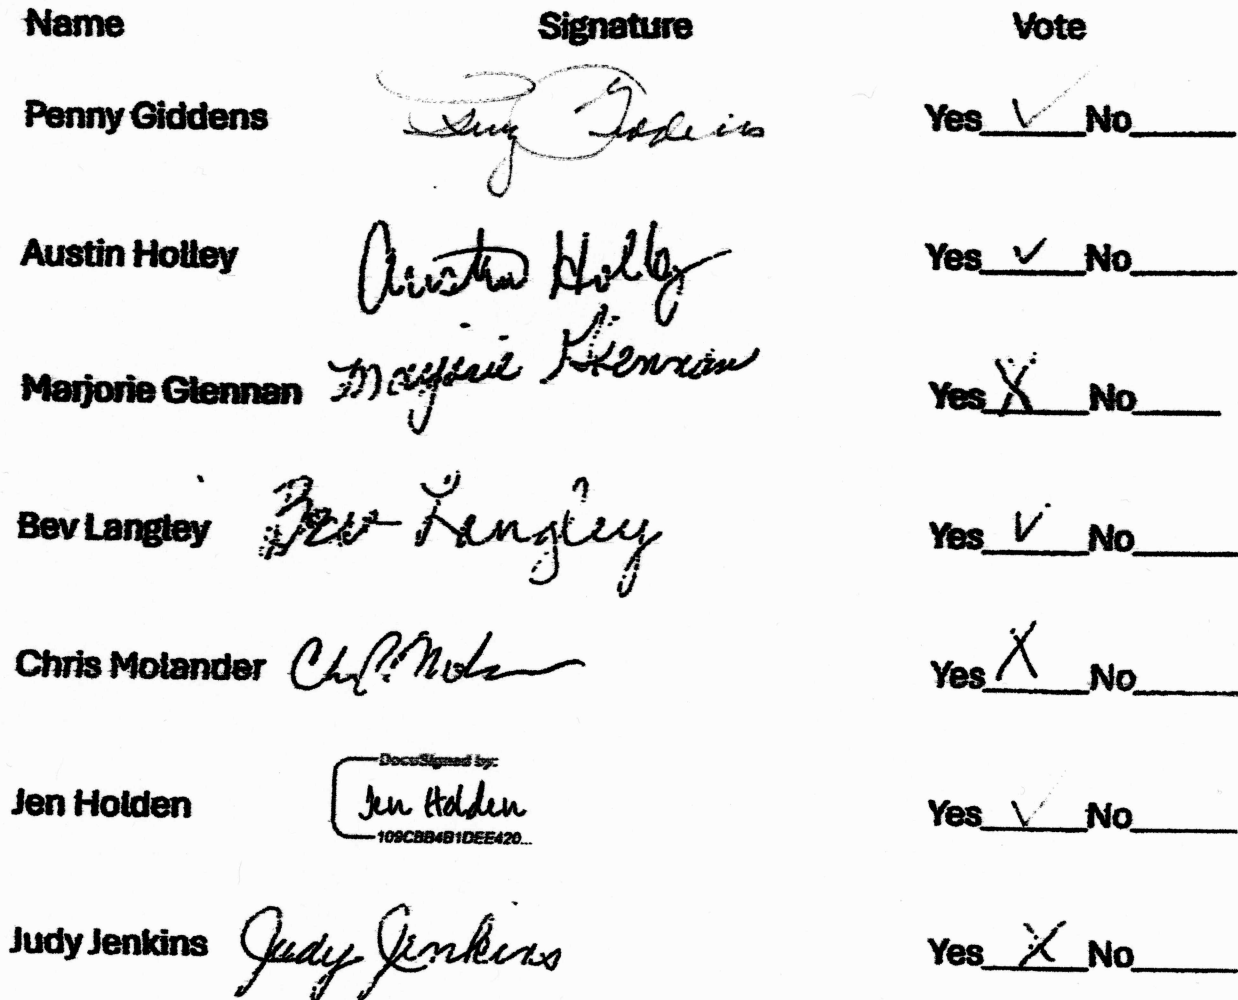 Name Signature Vote
Penny Giddens Penny Giddens Yes ✓ No
Austin Holley Austin Holley Yes ✓ No
Marjorie Glennan Marjorie Glennan Yes X No
Bev Langley Bev Langley Yes ✓ No
Chris Molander Yes X No
DocuSigned by:
Jen Holden Jen Holden Yes ✓ No
109CBB4B1DEE420...
Judy Jenkins Judy Jenkins Yes X No